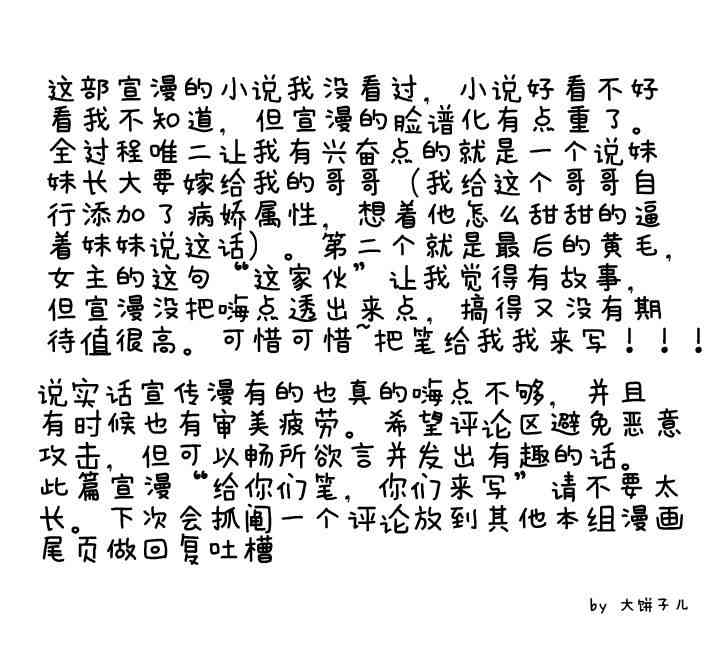 这部宣漫的小说我没看过，小说好看不好
看我不知道，但宣漫的脸谱化有点重了。
全过程唯二让我有兴奋点的就是一个说妹
妹长大要嫁给我的哥哥（我给这个哥哥自
行添加了病娇属性，想着他怎么甜甜的逼
着妹妹说这话）。第二个就是最后的黄毛，
女主的这句“这家伙”让我觉得有故事，
但宣漫没把嗨点透出来点，搞得又没有期
待值很高。可惜可惜~把笔给我我来写！！！
说实话宣传漫有的也真的嗨点不够，并且
有时候也有审美疲劳。希望评论区避免恶意
攻击，但可以畅所欲言并发出有趣的话。
此篇宣漫“给你们笔，你们来写”请不要太
长。下次会抓阄一个评论放到其他本组漫画
尾页做回复吐槽
by 大饼子儿